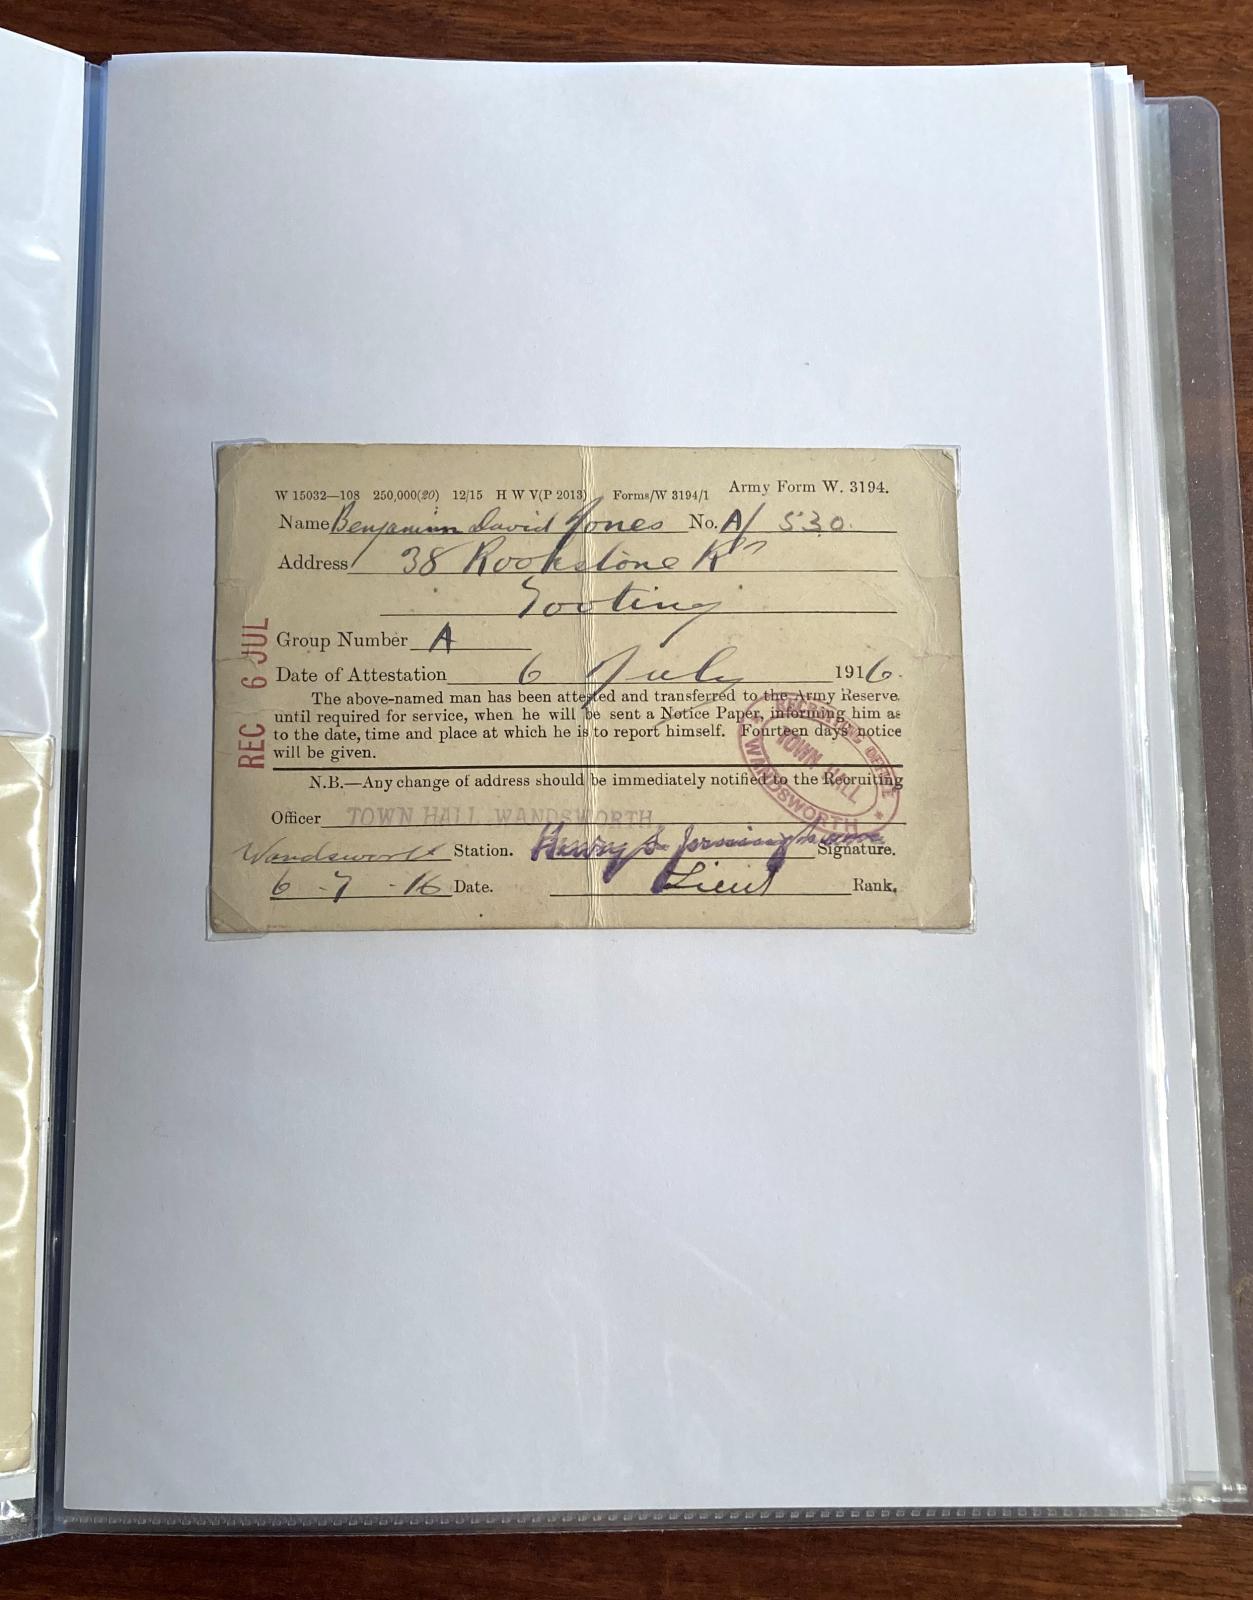 W 15032—108 250,000(20) 12/15 H W V(P 2013) Forms/W 3194/1 Army Form W. 3194.
Name Benjamin David Jones No. A/ 530.
Address 38 Rookstone Rd
Tooting
Group Number A
Date of Attestation 6 July 1916.
The above-named man has been attested and transferred to the Army Reserve
until required for service, when he will be sent a Notice Paper, informing him as
to the date, time and place at which he is to report himself. Fourteen days' notice
will be given.
N.B.—Any change of address should be immediately notified to the Recruiting
Officer TOWN HALL WANDSWORTH.
Wandsworth Station. Henry Signature.
6-7-16 Date. Lieut Rank.
REC 6 JUL
RECRUITING OFFICE
TOWN HALL
WANDSWORTH